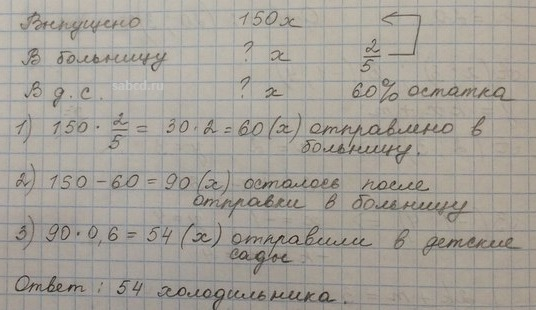 Выпущено 150х
В больницу ? х 2/5
sabcd.ru
В д.с. ? х 60% остатка
1) 150 · 2/5 = 30·2 = 60 (х) отправлено в
больницу.
2) 150 – 60 = 90 (х) осталось после
отправки в больницу
3) 90·0,6 = 54 (х) отправили в детские
сады.
Ответ: 54 холодильника.